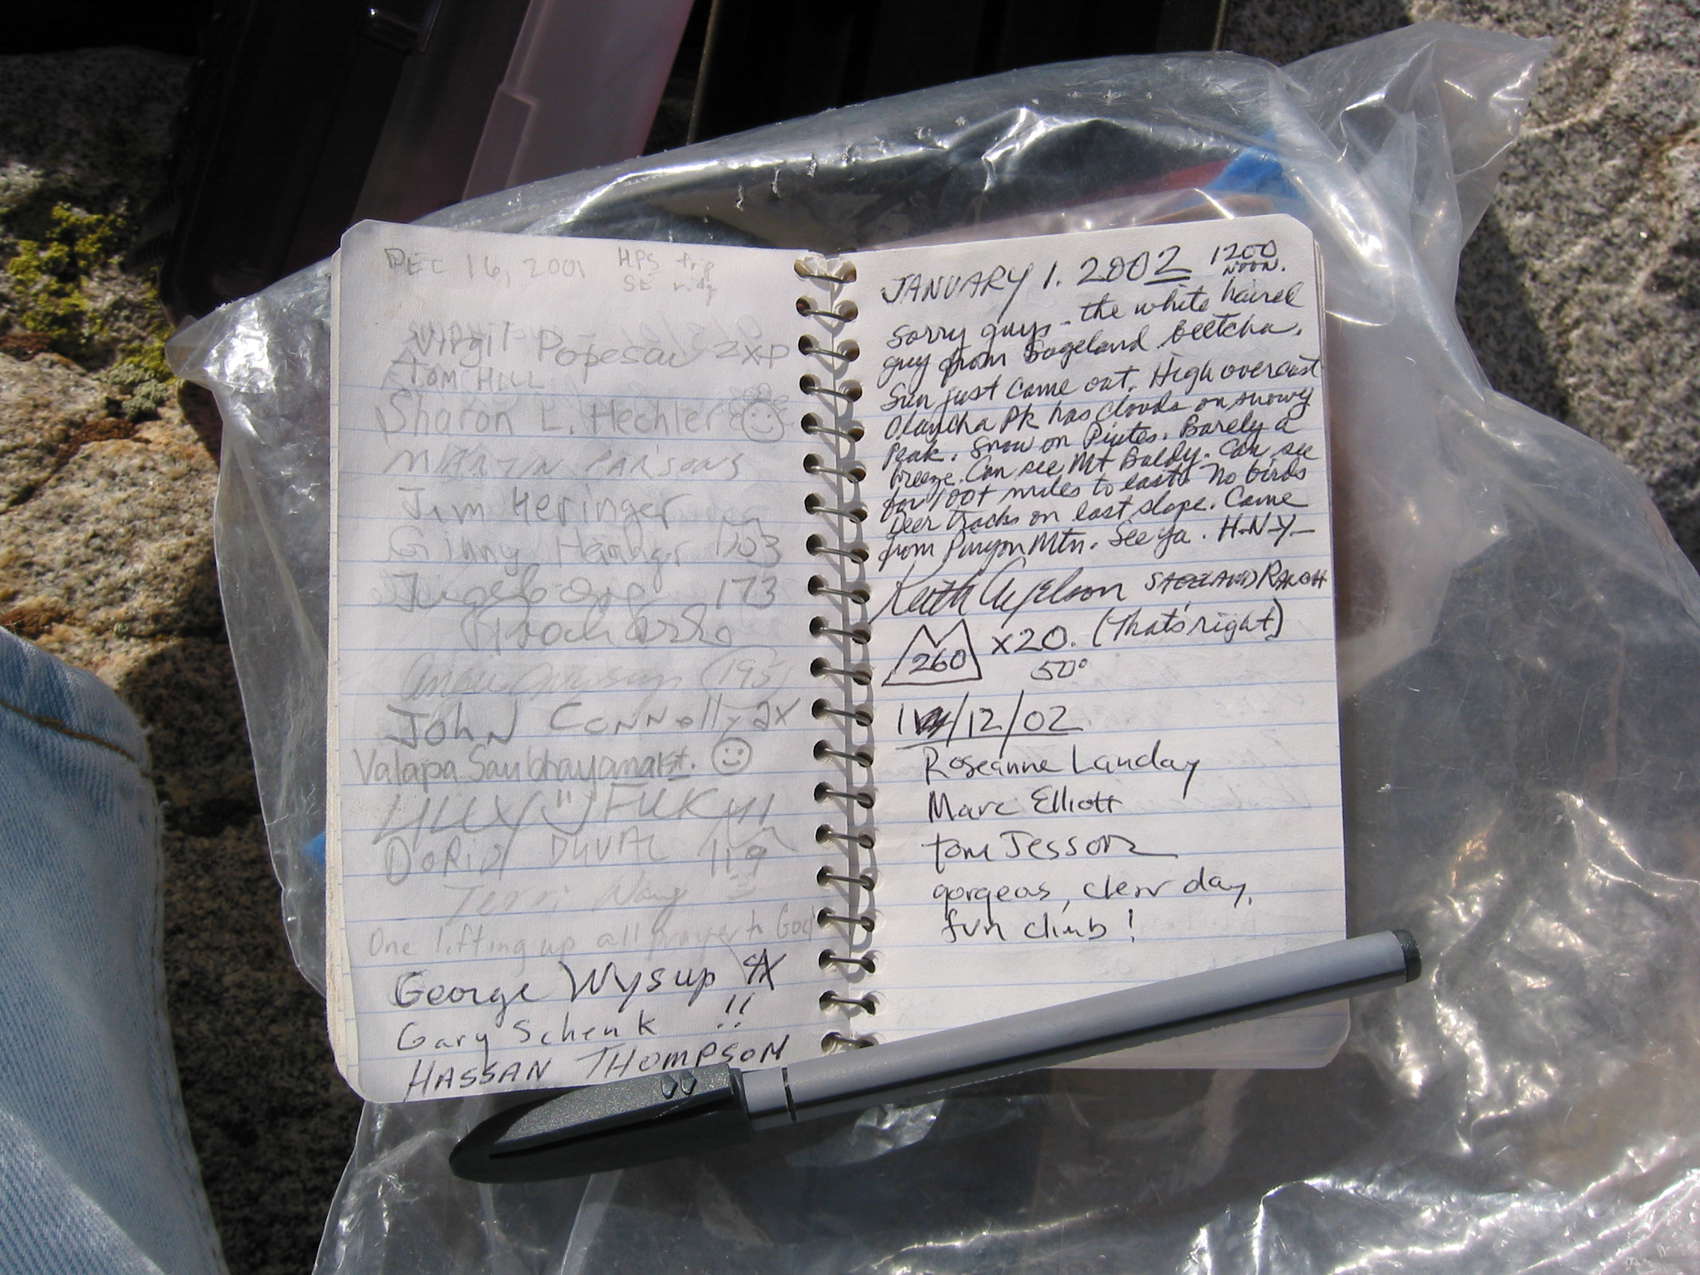 DEC 16, 2001 HPS trip
SE ridge
Virgil Popescu 2xP
TOM HILL
Sharon L. Hechler
MARTIN PARSONS
Jim Heringer
Ginny 1203
173
(195)
JOHN CONNOlly 2X
Valapa
LILLY FUKUI
DORIS DUVAL 119
Terri
One lifting up all prayer to God
George Wysup 4X
Gary Schenk !!
HASSAN THOMPSON
JANUARY 1. 2002 1200
NOON.
Sorry guys - the white haired
guy from Sageland beetcha.
Sun just came out. High overcast
Olancha Pk has clouds on snowy
Peak. Snow on Piutes. Barely a
breeze. Can see Mt Baldy. Can see
for 100+ miles to east. No birds
Deer tracks on east slope. Came
from Pinyon Mtn. See ya. H-N-Y-
Keith SAGELAND RANCH
260 x20. (That's right)
50°
1/12/02
Roseanne Landay
Marc Elliott
tom Jesson
gorgeos, clear day,
fun climb!